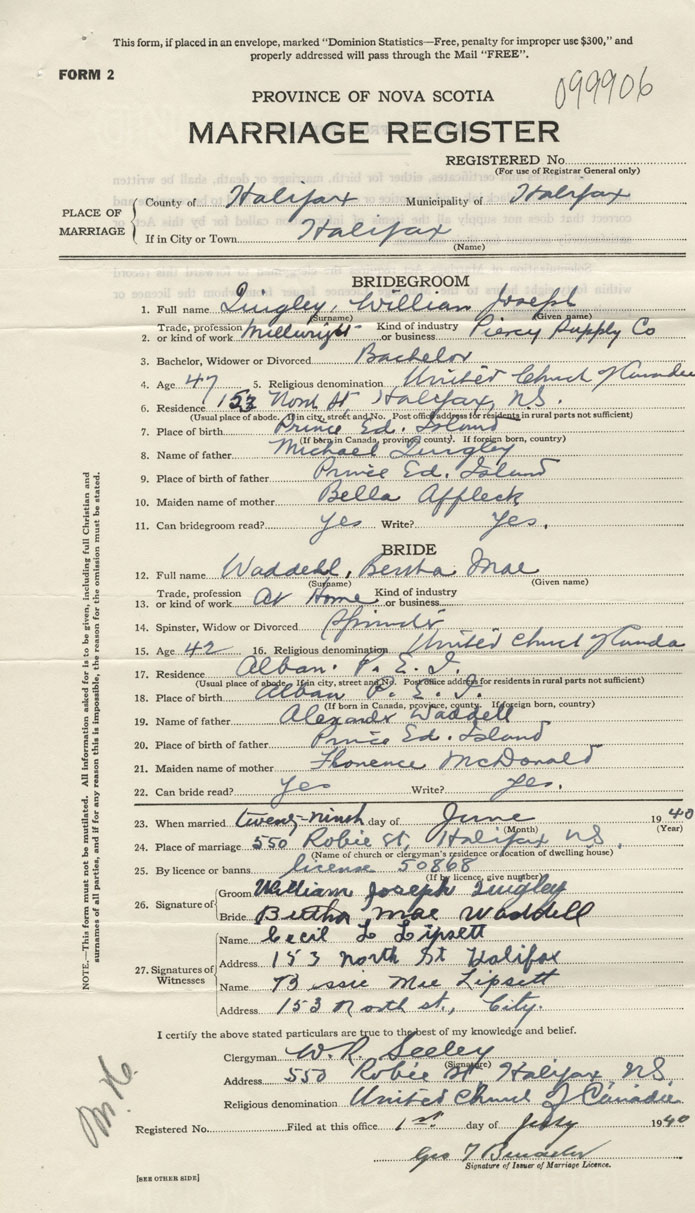 This form, if placed in an envelope, marked "Dominion Statistics—Free, penalty for improper use $300," and
properly addressed will pass through the Mail "FREE".
FORM 2
099906
PROVINCE OF NOVA SCOTIA
MARRIAGE REGISTER
REGISTERED No.
(For use of Registrar General only)
PLACE OF MARRIAGE
County of Halifax Municipality of Halifax
If in City or Town Halifax
(Name)
BRIDEGROOM
1. Full name Quigley, William Joseph
(Surname) (Given name)
2. Trade, profession or kind of work Millwright Kind of industry or business Piercy Supply Co
3. Bachelor, Widower or Divorced Bachelor
4. Age 47 5. Religious denomination United Church of Canada
6. Residence 153 North St, Halifax, N.S.
(Usual place of abode. If in city, street and No. Post office address for residents in rural parts not sufficient)
7. Place of birth Prince Ed. Island
(If born in Canada, province, county. If foreign born, country)
8. Name of father Michael Quigley
9. Place of birth of father Prince Ed. Island
10. Maiden name of mother Bella Affleck
11. Can bridegroom read? Yes Write? Yes.
BRIDE
12. Full name Waddell, Bertha Mae
(Surname) (Given name)
13. Trade, profession or kind of work At Home Kind of industry or business
14. Spinster, Widow or Divorced Spinster
15. Age 42 16. Religious denomination United Church of Canada
17. Residence Alban. P. E. I.
(Usual place of abode. If in city, street and No. Post office address for residents in rural parts not sufficient)
18. Place of birth Alban P. E. I.
(If born in Canada, province, county. If foreign born, country)
19. Name of father Alexander Waddell
20. Place of birth of father Prince Ed. Island
21. Maiden name of mother Florence McDonald
22. Can bride read? Yes Write? Yes.
23. When married twenty-ninth day of June 1940
(Month) (Year)
24. Place of marriage 550 Robie St, Halifax N.S.
(Name of church or clergyman's residence or location of dwelling house)
25. By licence or banns license 50868
(If by licence, give number)
26. Signature of
Groom William Joseph Quigley
Bride Bertha Mae Waddell
27. Signatures of Witnesses
Name Cecil L Lipsett
Address 153 North St Halifax
Name Bessie Mae Lipsett
Address 153 North St., City.
I certify the above stated particulars are true to the best of my knowledge and belief.
Clergyman W. R. Seeley
(Signature)
Address 550 Robie St Halifax N.S.
Religious denomination United Church of Canada
Registered No. Filed at this office 1st day of July 1940
Geo T
Signature of Issuer of Marriage Licence.
[SEE OTHER SIDE]
NOTE.—This form must not be mutilated. All information asked for is to be given, including full Christian and
surnames of all parties, and if for any reason this is impossible, the reason for the omission must be stated.